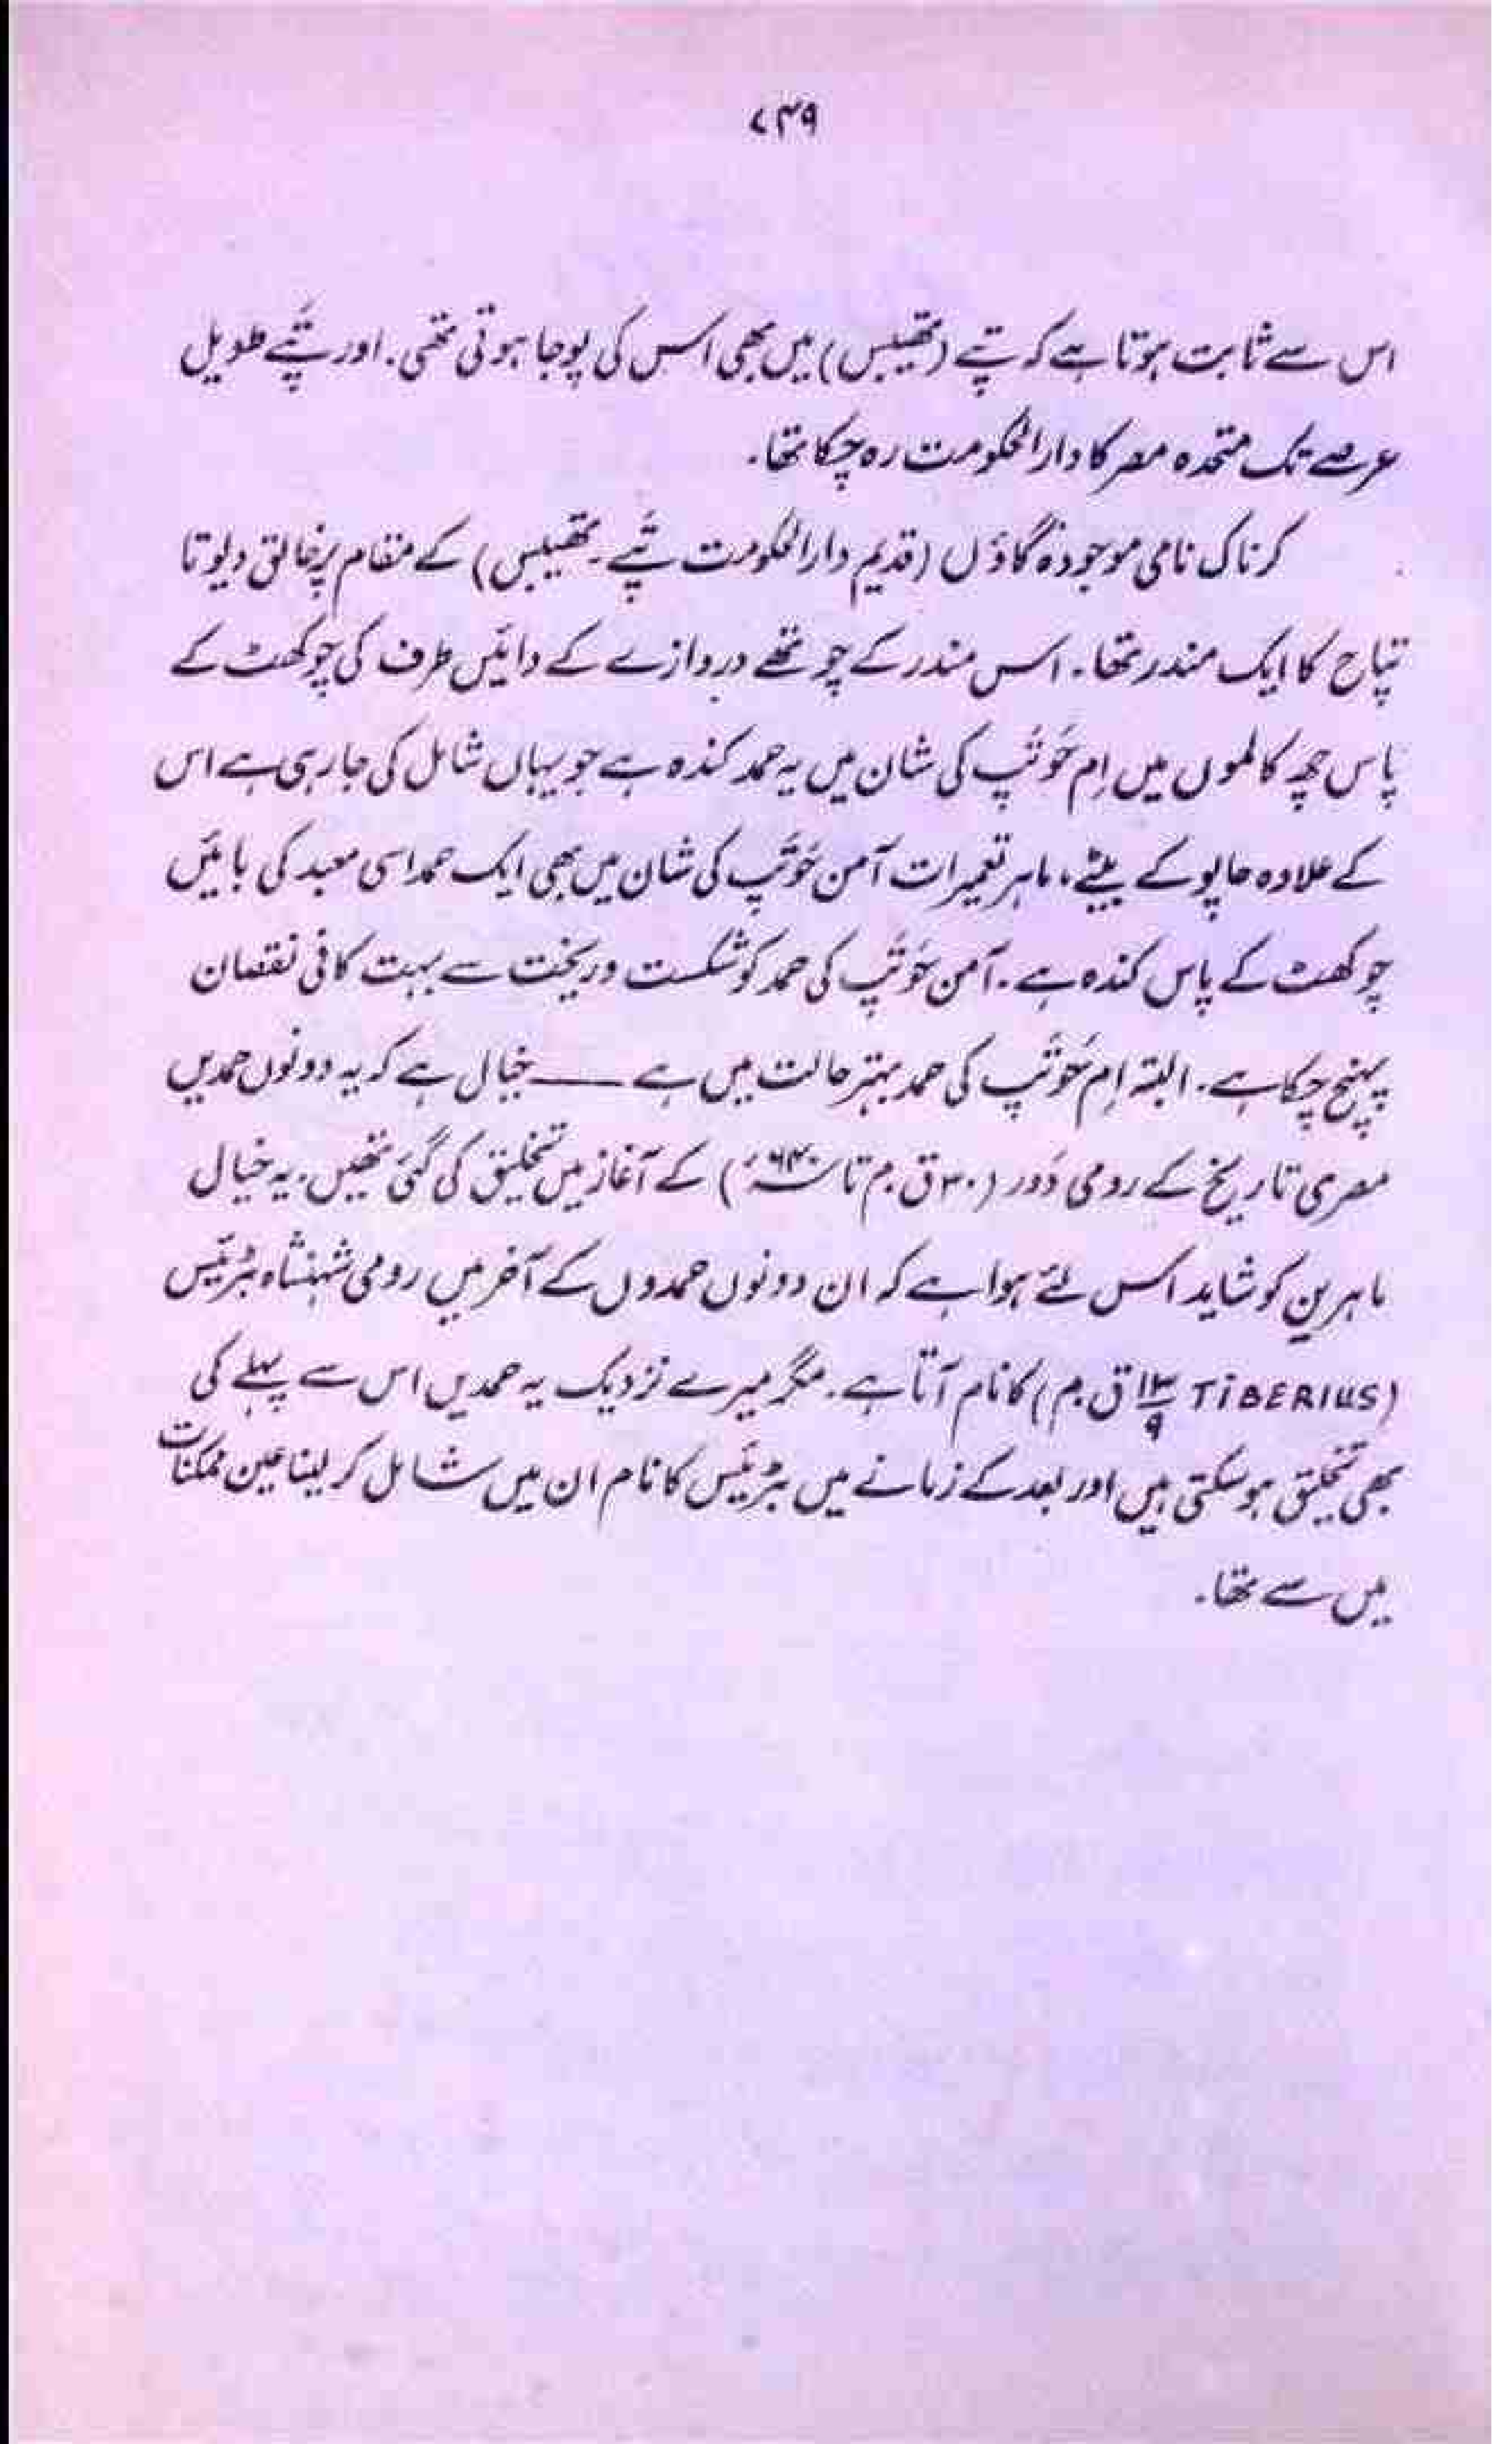 ۷۴۹
اس سے ثابت ہوتا ہے کہ تپے (تھیبس) میں بھی اس کی پوجا ہوتی تھی۔ اور تپے طویل
عرصے تک متحدہ مصر کا دارالحکومت رہ چکا تھا۔
کرناک نامی موجودہ گاؤں (قدیم دارالحکومت تپے۔ تھیبس) کے مقام پر خالق دیوتا
تپاح کا ایک مندر تھا۔ اس مندر کے چوتھے دروازے کے دائیں طرف کی چوکھٹ کے
پاس چھ کالموں میں اِم حَوتَپ کی شان میں یہ حمد کندہ ہے جو یہاں شامل کی جا رہی ہے اس
کے علاوہ حاپو کے بیٹے، ماہر تعمیرات آمن حَوتَپ کی شان میں بھی ایک حمد اسی معبد کی بائیں
چوکھٹ کے پاس کندہ ہے۔ آمن حَوتَپ کی حمد کو شکست وریخت سے بہت کافی نقصان
پہنچ چکا ہے۔ البتہ اِم حَوتَپ کی حمد بہتر حالت میں ہے ــــــ خیال ہے کہ یہ دونوں حمدیں
مصری تاریخ کے رومی دَور (۳۰ ق۔م تا ۶۴۰ء) کے آغاز میں تخلیق کی گئی تھیں۔ یہ خیال
ماہرین کو شاید اس لئے ہوا ہے کہ ان دونوں حمدوں کے آخر میں رومی شہنشاہ ٹبرئیس
(TiBERIUS ۱۴/۹ ق۔م) کا نام آتا ہے۔ مگر میرے نزدیک یہ حمدیں اس سے پہلے کی
بھی تخلیق ہو سکتی ہیں اور بعد کے زمانے میں ٹبرئیس کا نام ان میں شامل کر لینا عین ممکنات
میں سے تھا۔